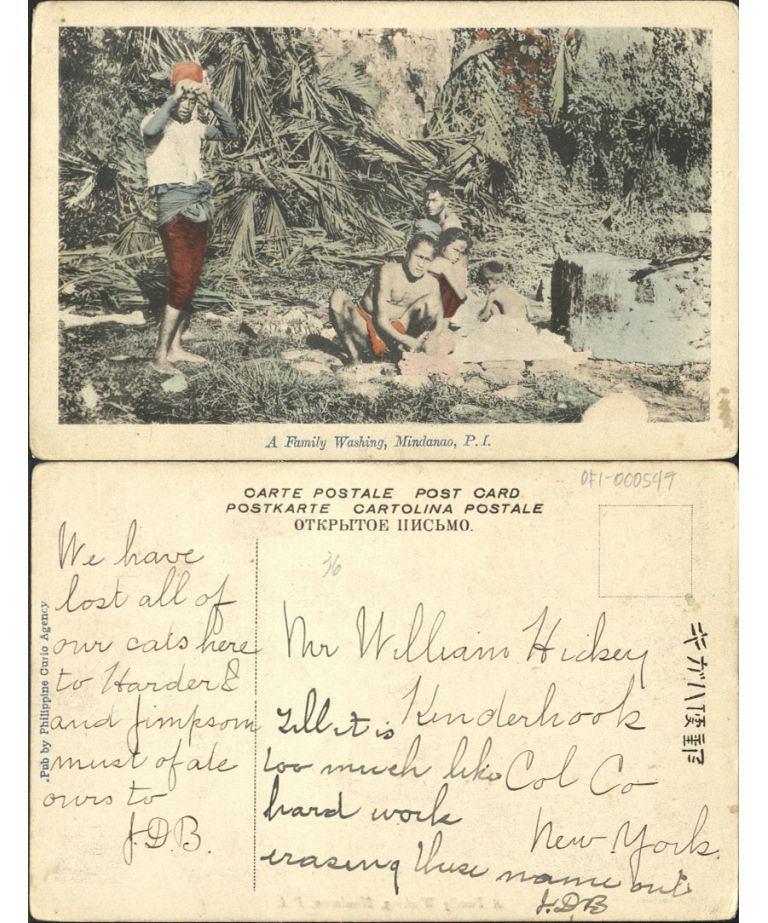 A Family Washing, Mindanao, P. I.
CARTE POSTALE POST CARD
POSTKARTE CARTOLINA POSTALE
ОТКРЫТОЕ ПИСЬМО.
OF1-000549
36
We have
lost all of
our cats here
to Harder &
and Jimpsom
must of ate
ours to
J.D.B.
.Pub by Philippine Curio Agency
Mr William Hickey
Kinderhook
Col Co
New York.
Till it is
too much like
hard work
erasing these name out
J.D.B
キガハ